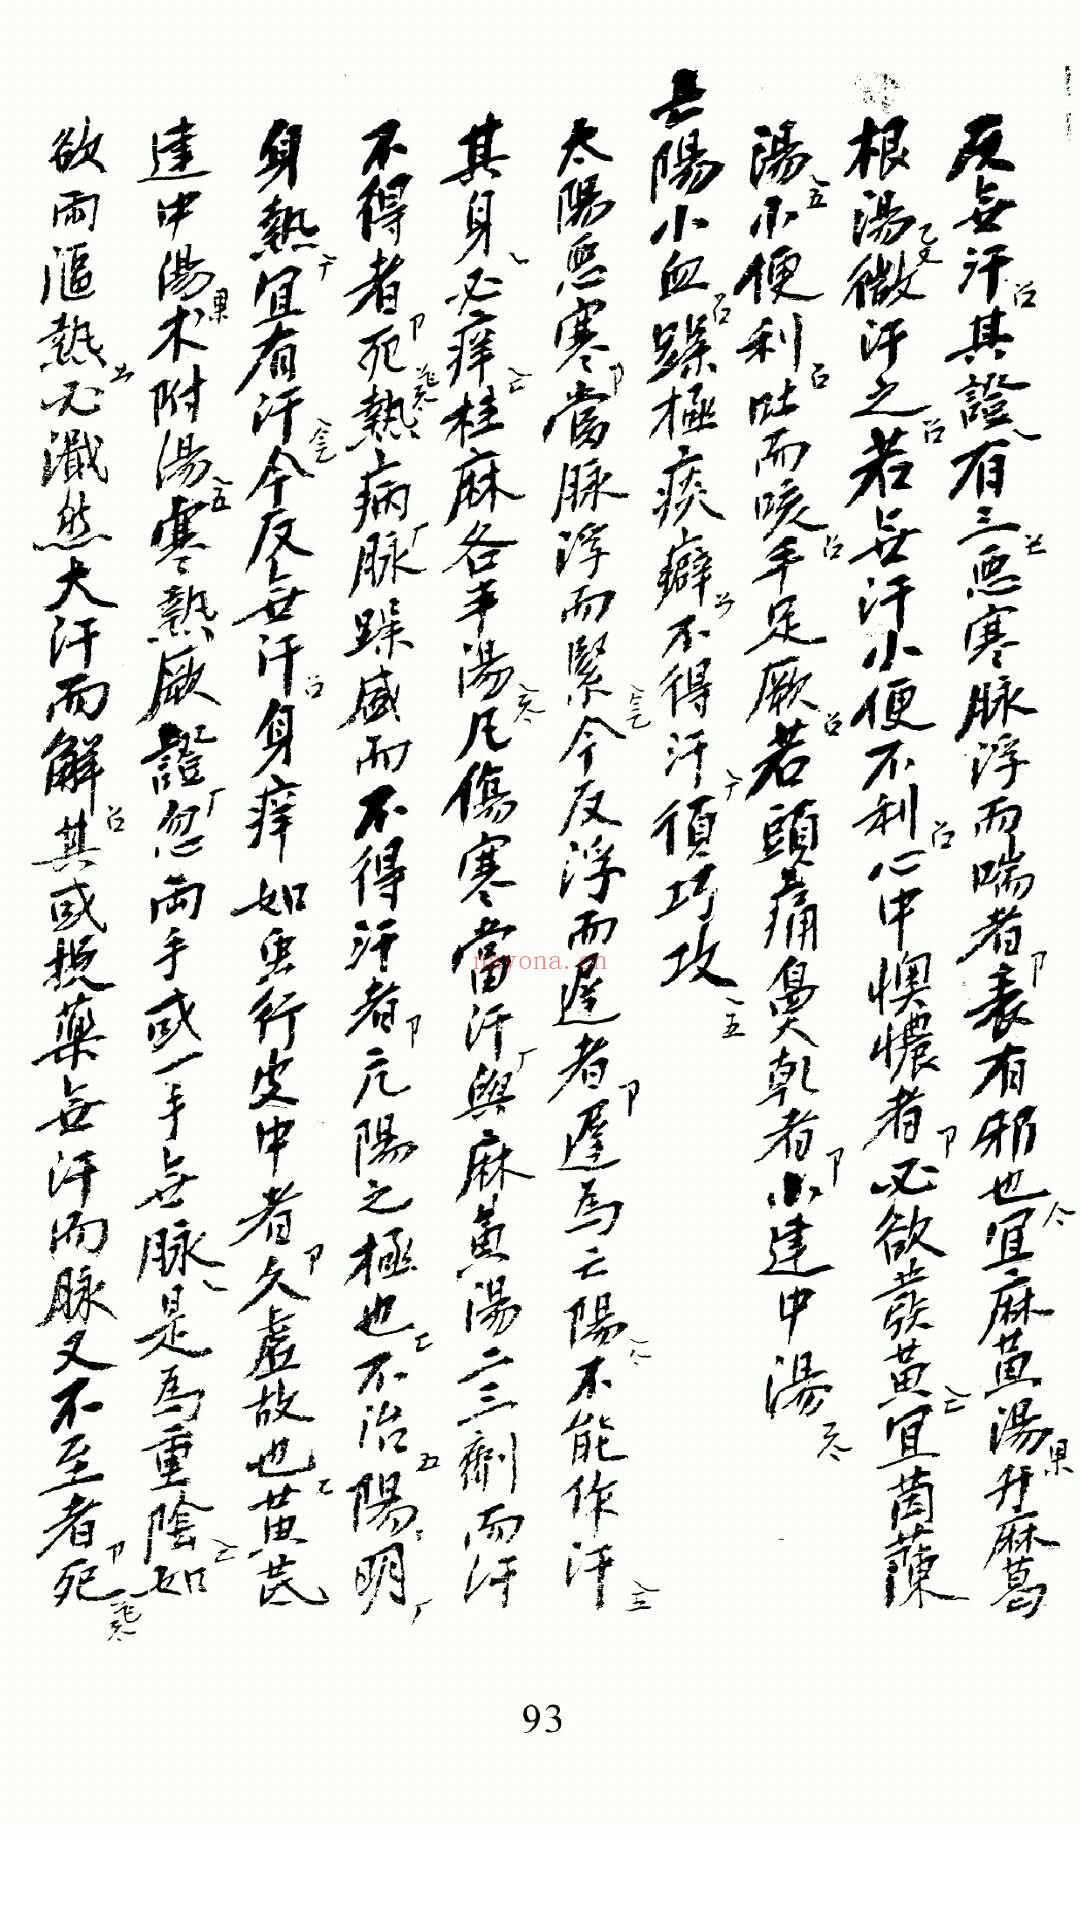 反無汗其證有三惡寒脉浮而喘者表有邪也宜麻黃湯升麻葛
根湯微汗之若無汗小便不利心中懊憹者必欲發黃宜茵蔯
湯小便利吐而咳手足厥若頭痛鼻乾者小建中湯
亡陽小血躁極痰癖不得汗須巧攻
太陽惡寒當脉浮而緊今反浮而遲者遲為亡陽不能作汗
其身必痒桂麻各半湯凡傷寒當汗與麻黃湯二三劑而汗
不得者死熱病脉躁盛而不得汗者亢陽之極也不治陽明
身熱宜有汗今反無汗身痒如虫行皮中者久虛故也黃芪
建中湯术附湯寒熱厥證忽兩手或一手無脉是為重陰如
欲雨漚熱必濈然大汗而解其或投藥無汗而脉又不至者死
93
nayona.cn